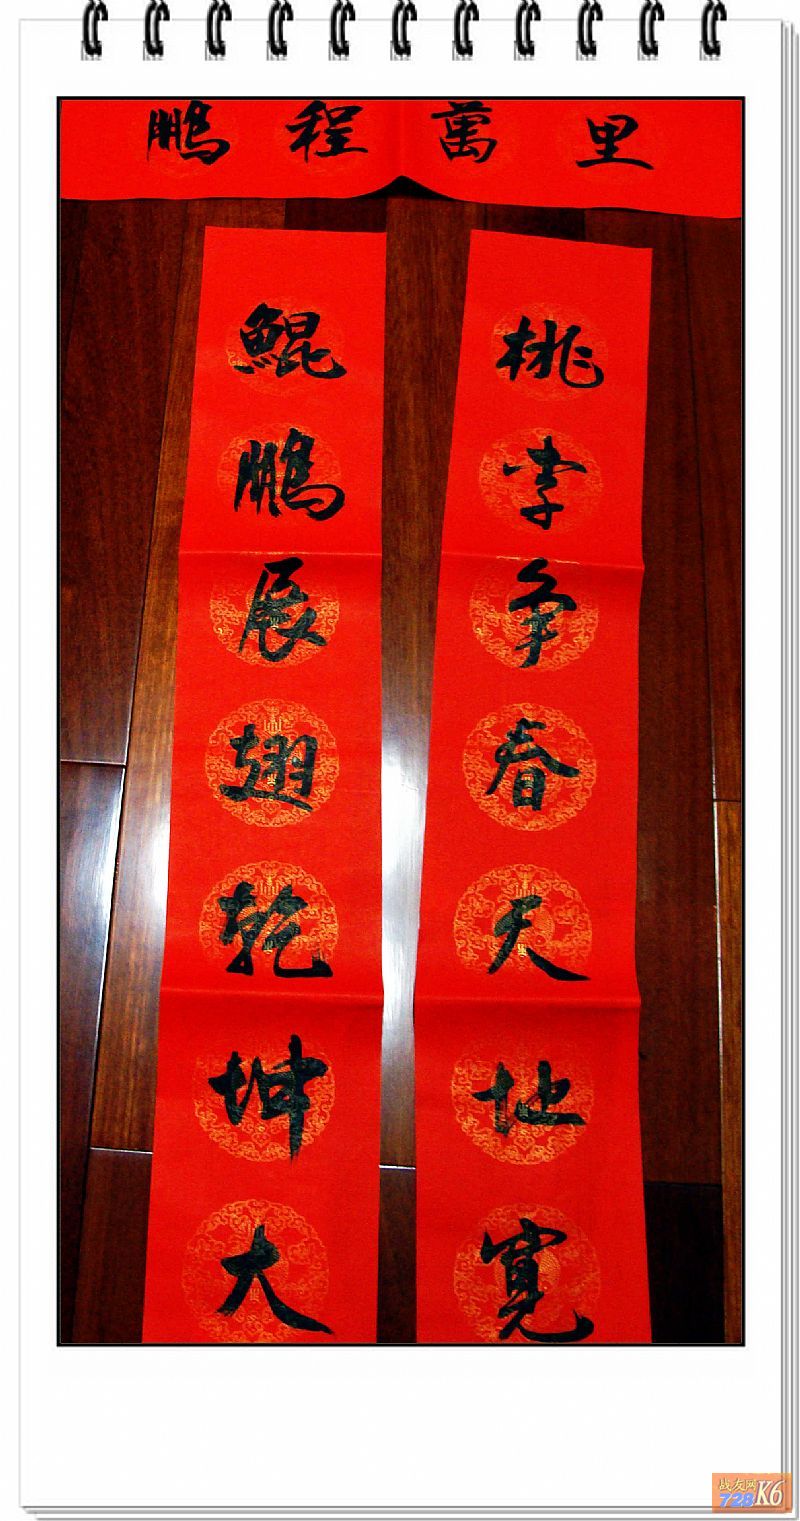 鹏程萬里
鲲鹏展翅乾坤大
桃李争春天地寬
战友网
728K6